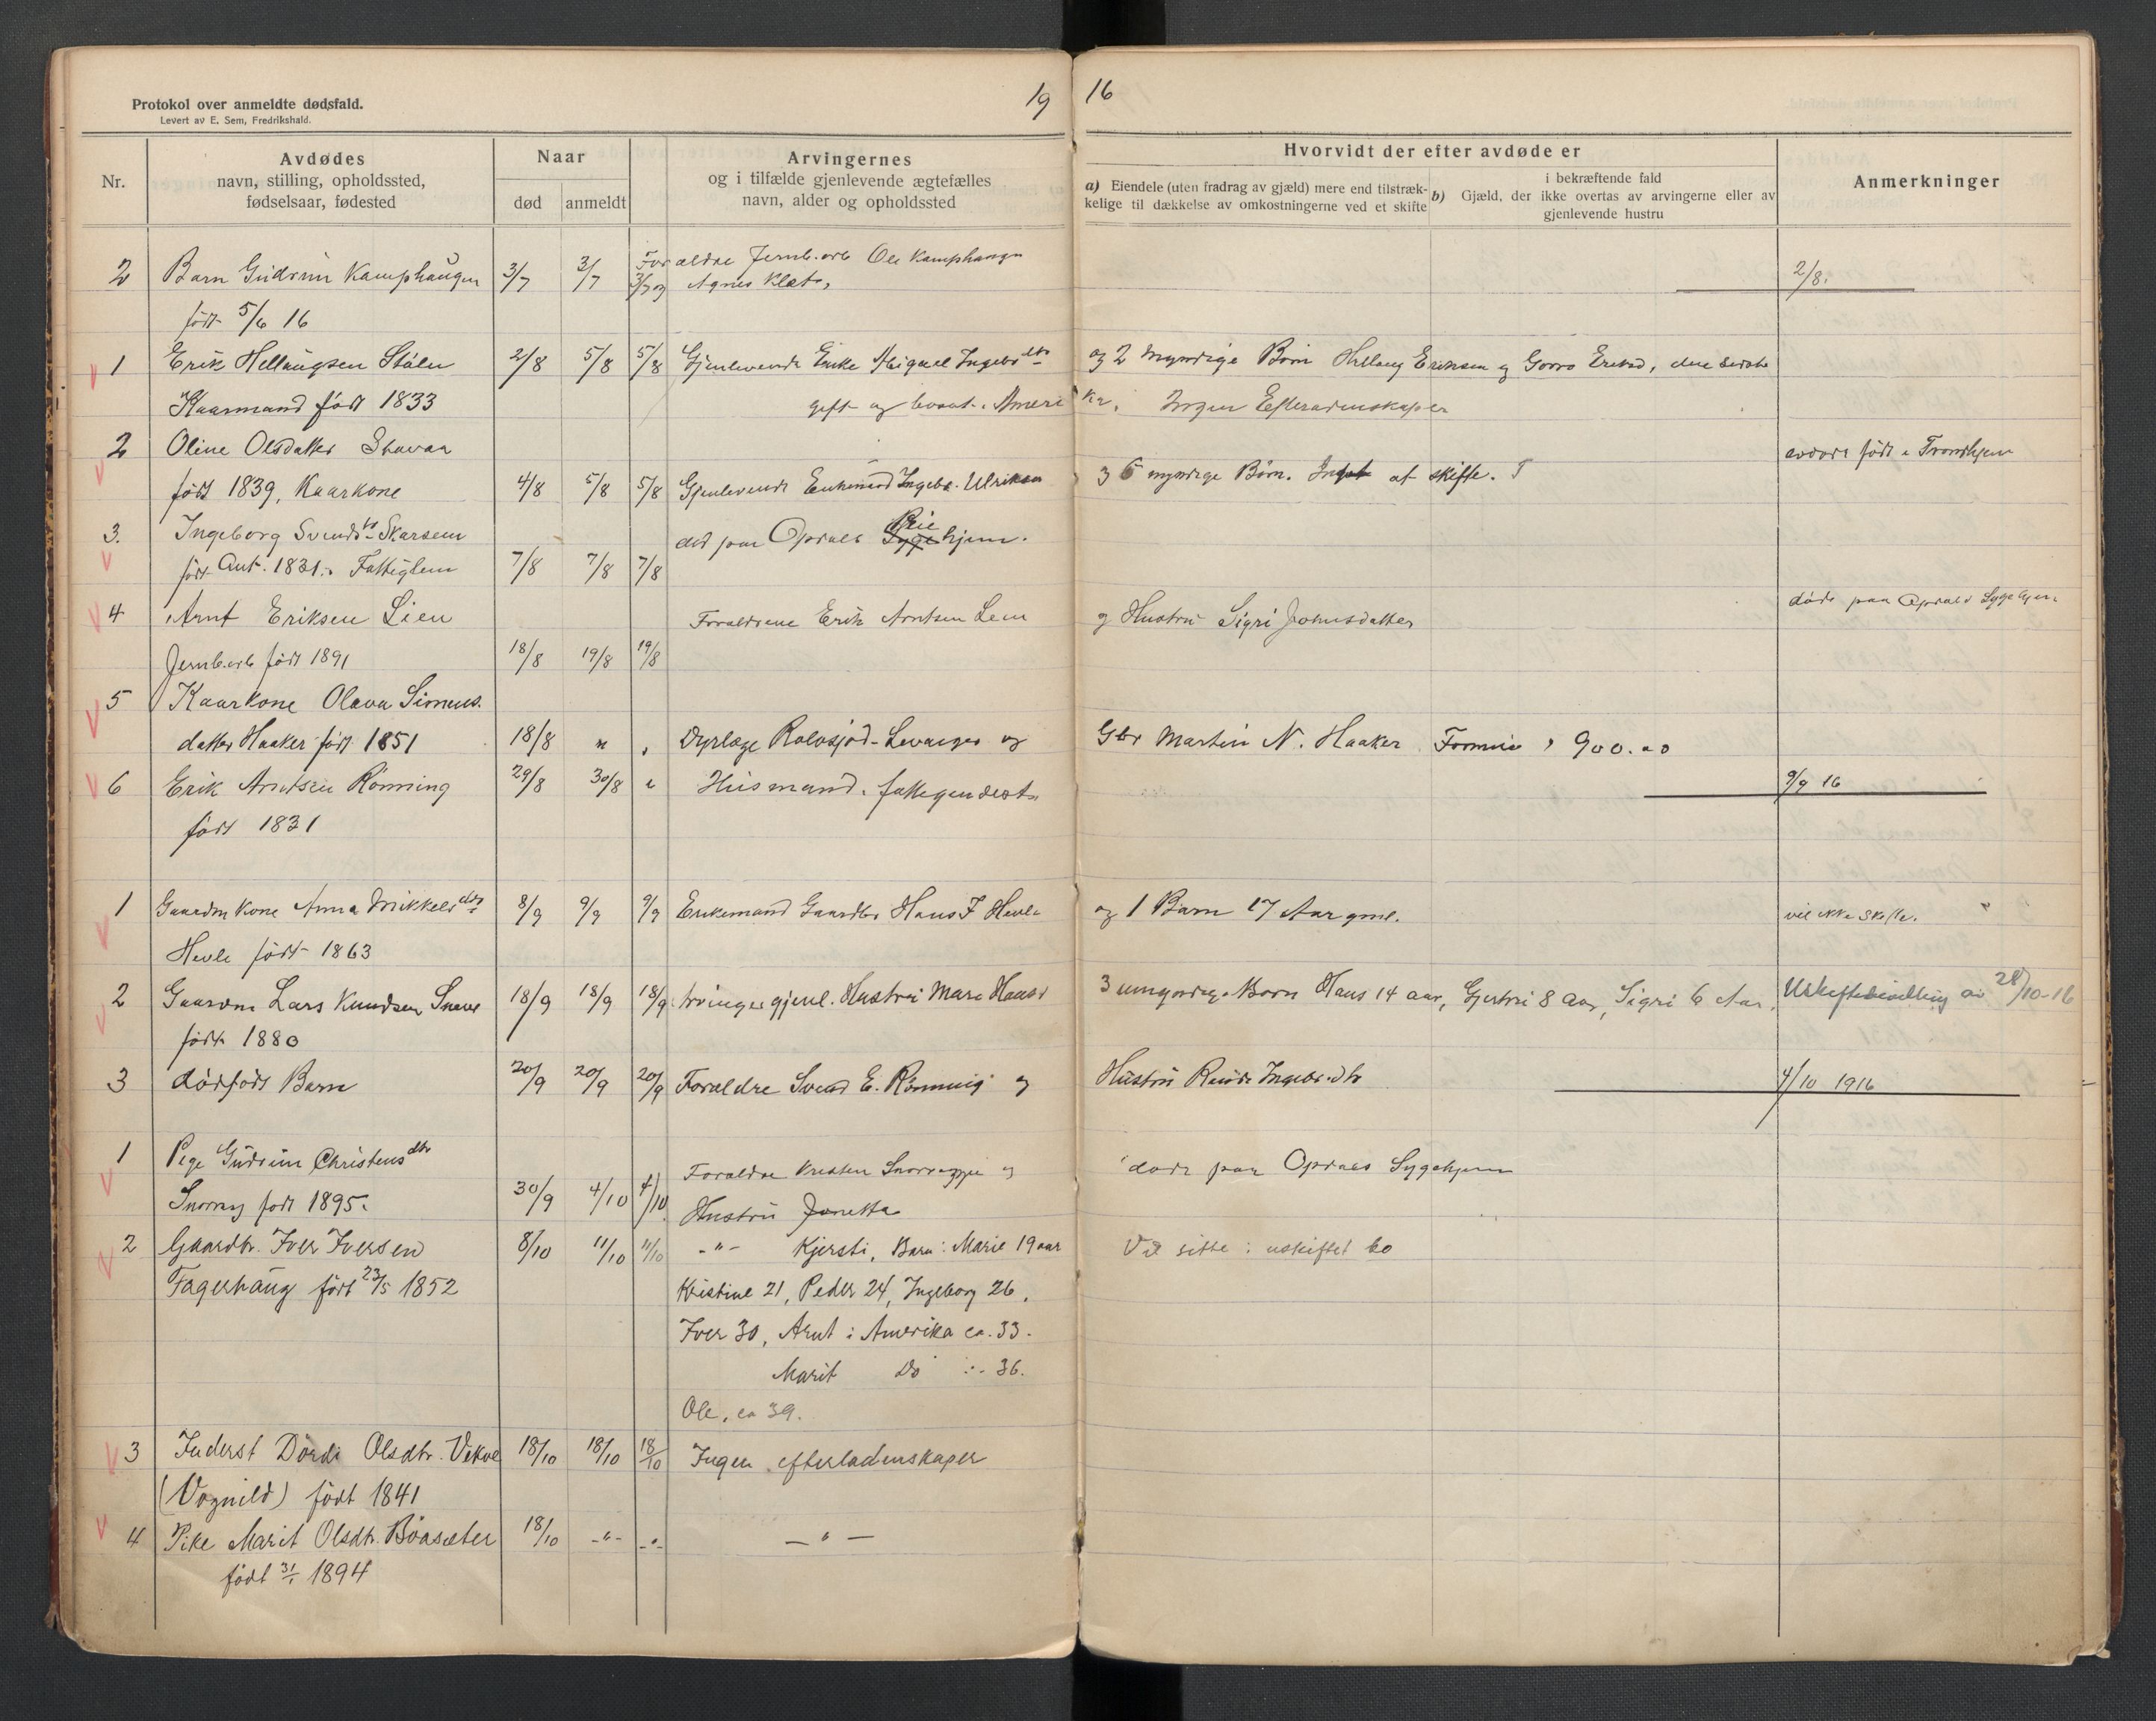 Protokol over anmeldte dødsfald.
Levert av E. Sem, Fredrikshald.
19 16
Nr.
Avdødes
navn, stilling, opholdssted,
fødselsaar, fødested
Naar
død anmeldt
Arvingernes
og i tilfælde gjenlevende ægtefælles
navn, alder og opholdssted
Hvorvidt der efter avdøde er
a) Eiendele (uten fradrag av gjæld) mere end tilstræk-
kelige til dækkelse av omkostningerne ved et skifte
i bekræftende fald
b) Gjæld, der ikke overtas av arvingerne eller av
gjenlevende hustru
Anmerkninger
2 Barn Gudrun Kamphaugen 3/7 3/7 3/7 Forældre Jernb.arb Ole Kamphaugen
og Agnes 2/8.
født 5/6 16
1 Erik Hellaugsen Stölen 2/8 5/8 5/8 Gjenlevende Enke Abigael Ingebr dtr og 2 myndige Børn Hellaug Eriksen og Eriksd, den sidste
Kaarmand født 1833 gift og bosat i Amerika. Ingen Efterladenskaper
2 Oline Olsdatter Stavaa avdøde født i Trondhjem
født 1839, Kaarkone 4/8 5/8 5/8 Gjenlevende Enkemand Ingebr. Ulriksen 6 myndige Børn. Intet at skifte.
3. Ingeborg Svends Skarsem død paa Opdals Pleiehjem.
født Ant. 1831. Fattiglem 7/8 7/8 7/8
4 Arnt Eriksen Lien Forældrene Erik Arntsen Lien og Hustru Sigri Johnsdatter døde paa Opdals Sygehjem
Jernb.arb født 1891 18/8 19/8 19/8
5 Kaarkone Olava Simens.
datter Haaker født 1851 18/8 " Dyrlæge Levanger og Gbr Martin N. Haaker. Formue 900.00
6 Erik Arntsen Rönning 29/8 30/8 " Husmand, 9/9 16
født 1831
1 Gaardm Kone Anna Mikkelsdtr 8/9 9/9 9/9 Enkemand Gaardbr Hans J Hevle og 1 Barn 17 Aar gml. vil ikke skifte.
Hevle født 1863
2 Gaardm Lars Knudsen 18/9 18/9 18/9 Arvinger gjenl. Hustru Mare Hansd 3 umyndige Børn Hans 14 aar, Gjertru 8 Aar, Sigri 6 Aar. Uskiftebevilling av 28/10-16
født 1880
3 dødfødt Barn 20/9 20/9 20/9 Forældre Svend E. Rönning og Hustru Ingebr.dtr 4/10 1916
1 Pige Gudrun Christensdtr Forældre Kristen og døde paa Opdals Sygehjem
født 1895. 30/9 4/10 4/10 Hustru Jonetta
2 Gaardbr. Iver Iversen 8/10 11/10 11/10 -"- Kjersti, Barn: Marie 19 aar Vil sitte i uskiftet bo
Fagerhaug født 23/5 1852 Kristine 21, Peder 24, Ingeborg 26,
Iver 30, Arnt i Amerika ca. 33.
Marit Do -:- 36.
Ole, ca 39.
3 Inderst Dordi Olsdtr. Vekve 18/10 18/10 18/10 Ingen efterladenskaper
(Vognild) født 1841
4 Pike Marit Olsdtr. Böasæter 18/10 -"- -"- — " —
født 31/1 1894